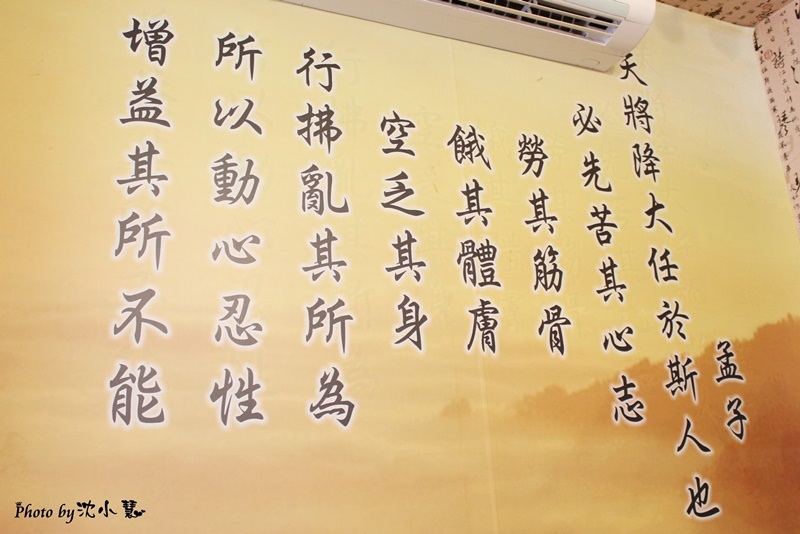 孟子
天將降大任於斯人也
必先苦其心志
勞其筋骨
餓其體膚
空乏其身
行拂亂其所為
所以動心忍性
增益其所不能
Photo by 沈小慧